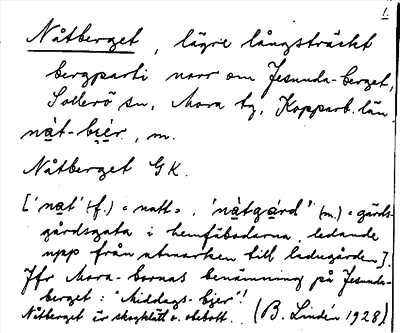 1.
Nåtberget, lägre långsträckt
bergparti norr om Jesunda-berget,
Sollerö sn, Mora tg, Kopparb. län
nàt-bjèr, m.
Nåtberget GK.
['nat' (f.) = natt = ; 'nàtgard' (m.) = gärds-
gårdsgata i hemfäbodarna, ledande
upp från utmarken till ladugården].
Jfr Mora-bornas benämning på Jesunda-
berget: "Middags-bjer"!
Nåtberget är skogklätt o. obebott. (B. Lindén 1928)